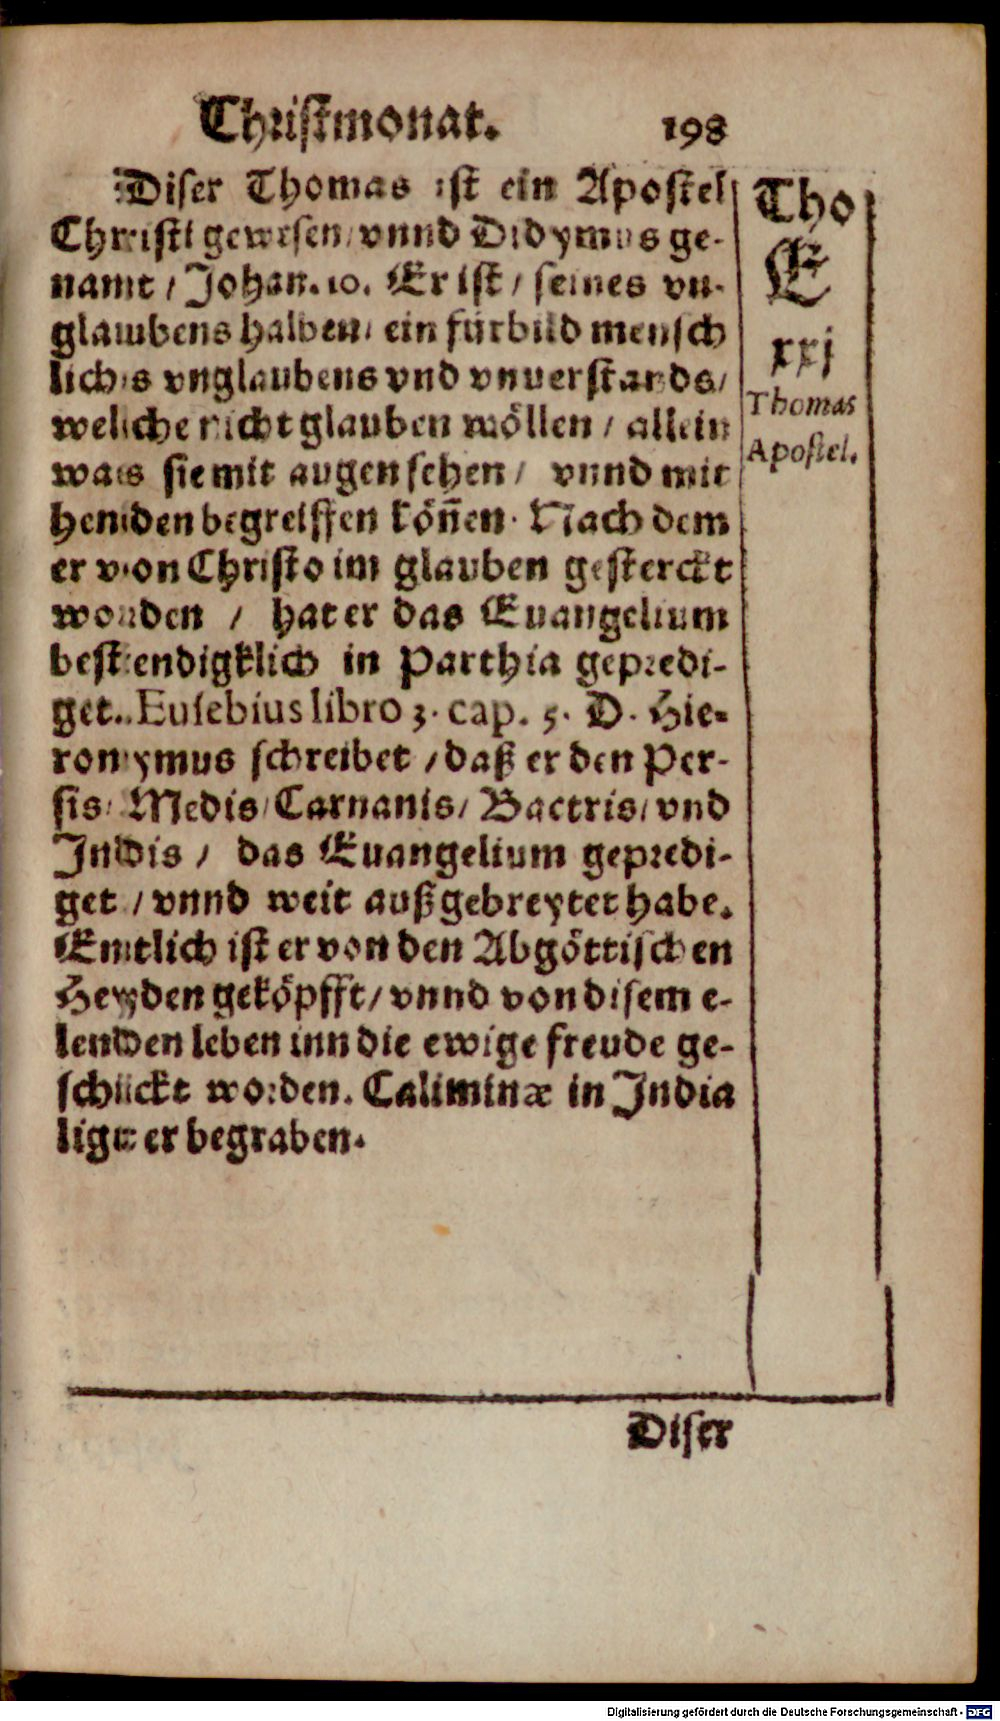 Christmonat. 198
Diser Thomas ist ein Apostel
Christi gewesen / vnnd Didymus ge-
namt / Johan. 10. Er ist / seines vn-
glaubens halben / ein fürbild mensch
lichs vnglaubens vnd vnuerstands /
weliche nicht glauben wöllen / allein
was sie mit augen sehen / vnnd mit
henden begreiffen köñen. Nach dem
er von Christo im glauben gesterckt
worden / hat er das Euangelium
bestendigklich in Parthia gepredi-
get. Eusebius libro 3. cap. 5. D. Hie-
ronymus schreibet / daß er den Per-
sis / Medis / Carnanis / Bactris / vnd
Indis / das Euangelium gepredi-
get / vnnd weit außgebreytet habe.
Entlich ist er von den Abgöttischen
Heyden geköpfft / vnnd von disem e-
lenden leben inn die ewige freude ge-
schickt worden. Caliminæ in India
ligt er begraben.
Tho
E
xxj
Thomas
Apostel.
Diser
Digitalisierung gefördert durch die Deutsche Forschungsgemeinschaft - DFG